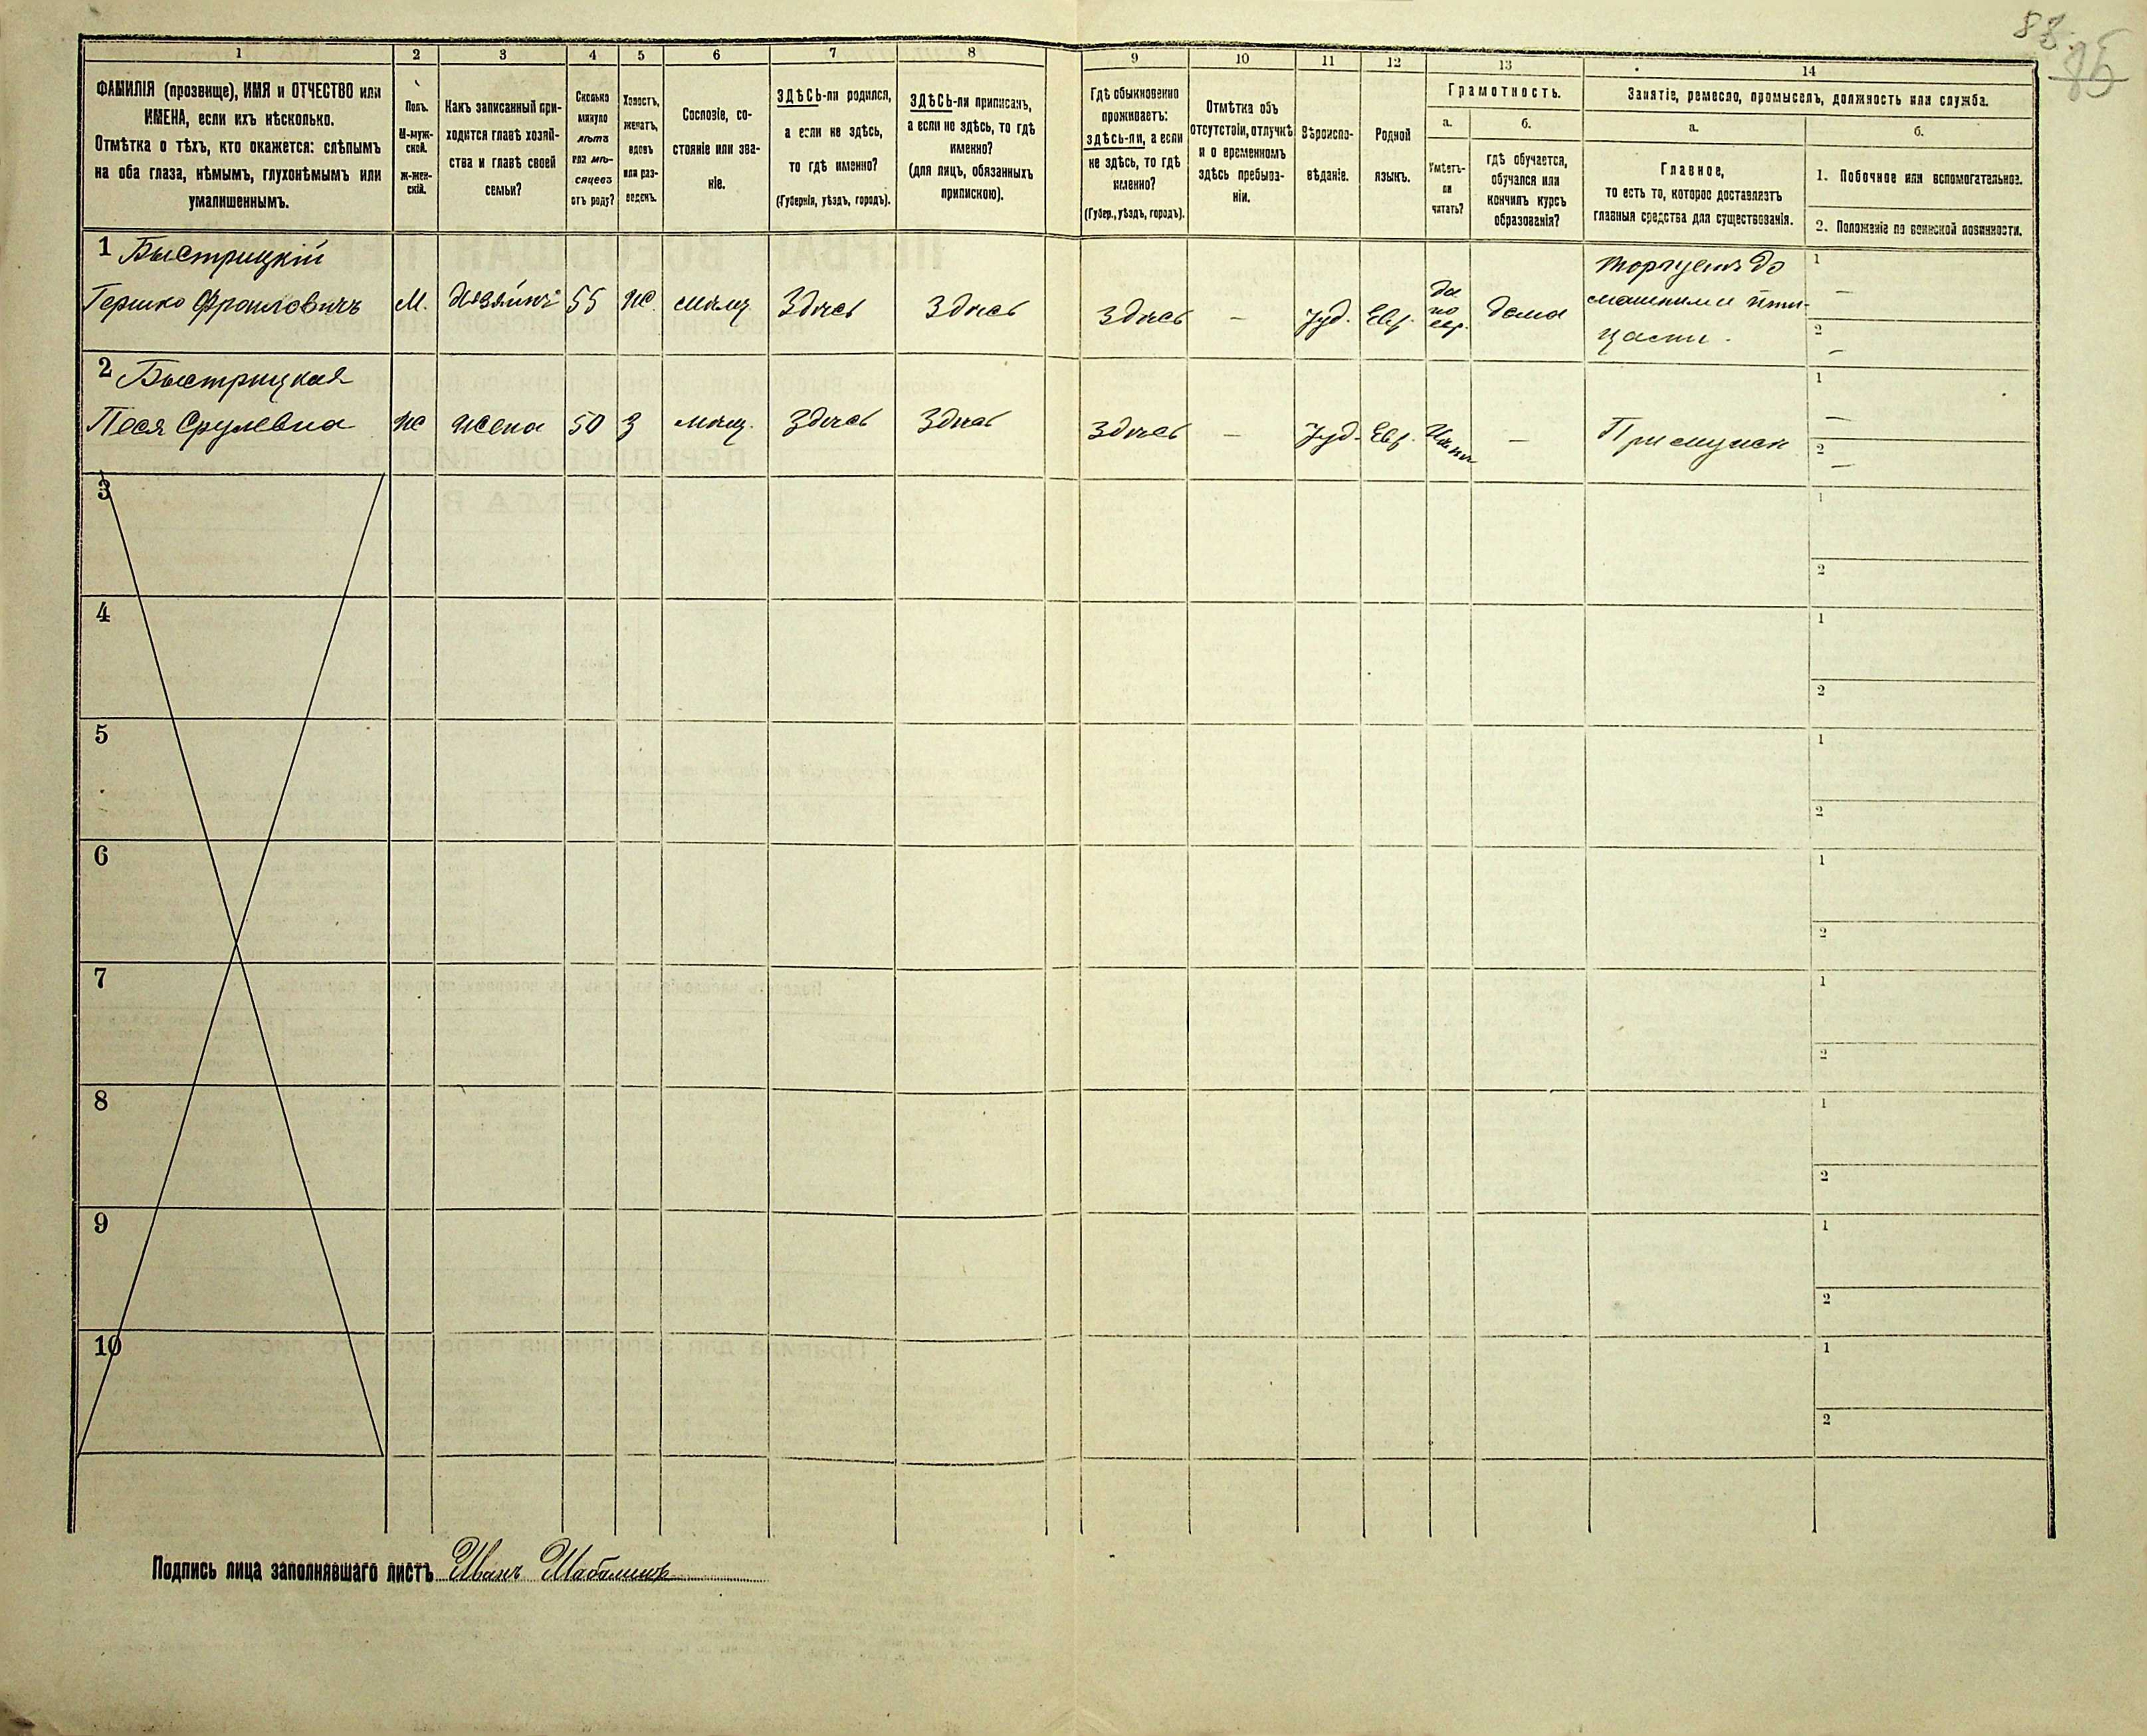 85
1 2 3 4 5 6 7 8 9 10 11 12 13 14
ФАМИЛІЯ (прозвище), ИМЯ и ОТЧЕСТВО или
ИМЕНА, если ихъ нѣсколько.
Отмѣтка о тѣхъ, кто окажется: слѣпымъ
на оба глаза, нѣмымъ, глухонѣмымъ или
умалишеннымъ.
Полъ.
М-муж-
ской.
Ж-жен-
скій.
Какъ записанный при-
ходится главѣ хозяй-
ства и главѣ своей
семьи?
Сколько
минуло
лѣтъ
или мѣ-
сяцевъ
отъ роду?
Холостъ,
женатъ,
вдовъ
или раз-
веденъ.
Сословіе, со-
стояніе или зва-
ніе.
ЗДѢСЬ-ли родился,
а если не здѣсь,
то гдѣ именно?
(Губернія, уѣздъ, городъ).
ЗДѢСЬ-ли приписанъ,
а если не здѣсь, то гдѣ
именно?
(для лицъ, обязанныхъ
припискою).
Гдѣ обыкновенно
проживаетъ:
здѣсь-ли, а если
не здѣсь, то гдѣ
именно?
(Губер., уѣздъ, городъ).
Отмѣтка объ
отсутствіи, отлучкѣ
и о временномъ
здѣсь пребыва-
ніи.
Вѣроиспо-
вѣданіе.
Родной
языкъ.
Грамотность.
а.
Умѣетъ-
ли
читать?
б.
гдѣ обучается,
обучался или
кончилъ курсъ
образованія?
Занятіе, ремесло, промыселъ, должность или служба.
а.
Главное,
то есть то, которое доставляетъ
главныя средства для существованія.
б.
1. Побочное или вспомогательное.
2. Положеніе по воинской повинности.
1 Быстрицкій
Гершко Фроиловичъ М. Хозяинъ 55 Ж. мѣщ. Здѣсь Здѣсь Здѣсь — Іуд. Евр.
да
по
евр.
дома
торгуетъ до
машними пти-
цами.
1 —
2 —
2 Быстрицкая
Песя Срулевна Ж Жена 50 З мѣщ. Здѣсь Здѣсь Здѣсь — Іуд. Евр. — При мужѣ
1 —
2 —
3
1
2
4
1
2
5
1
2
6
1
2
7
1
2
8
1
2
9
1
2
10
1
2
Подпись лица заполнявшаго листъ Иванъ Шабалинъ